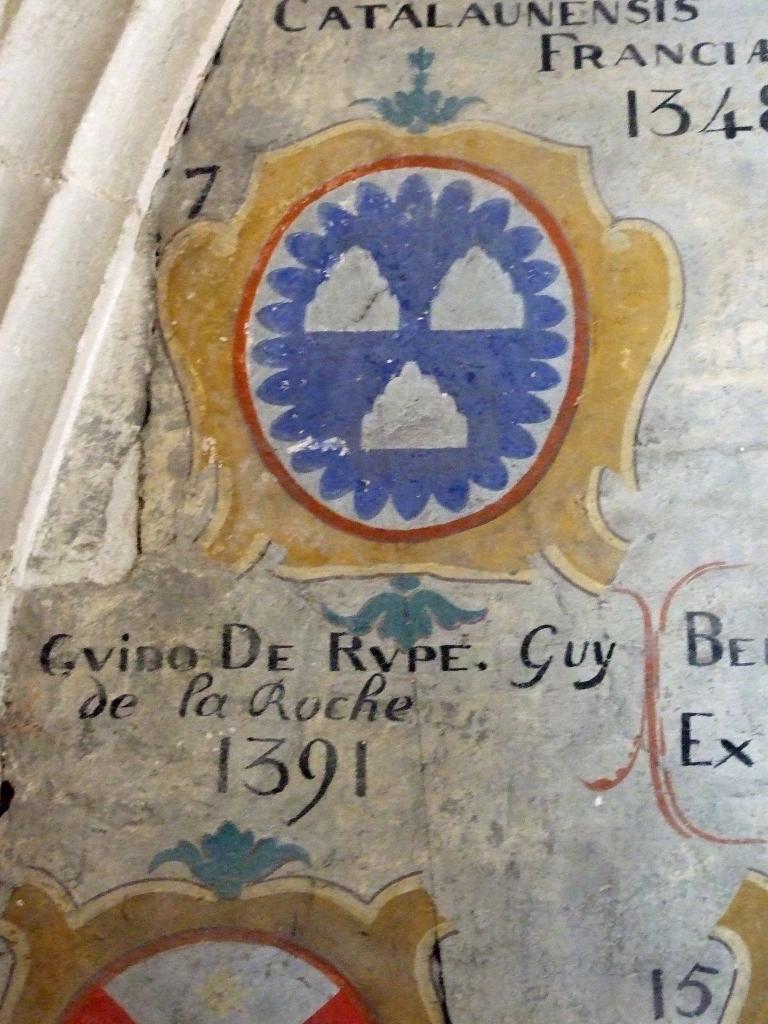 CATALAUNENSIS
FRANCIÆ
1348
7
GVIDO DE RVPE. Guy
de la Roche
1391
Ex
15